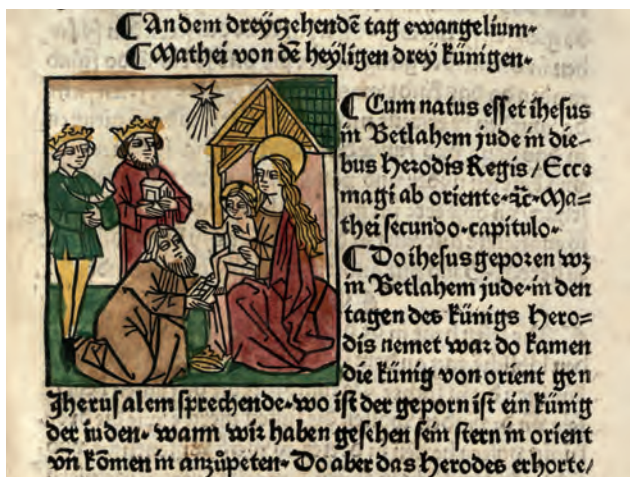 ⸿ An dem dreyczehendē tag ewangelium·
⸿ Mathei von dē heyligen drey künigen·
⸿ Cum natus esset ihesus
in Betlahem jude in die-
bus Herodis Regis / Ecce
magi ab oriente·⁊c·Ma=
thei secundo·capitulo·
⸿ Do ihesus geporen wz
in Betlahem jude·in den
tagen des künigs Hero=
dis nemet war do kamen
die künig von orient gen
Jherusalem sprechende·wo ist der geporn ist ein künig
der iuden· wann wir haben gesehen sein stern in orient
vn̄ kōmen in anzůpeten· Do aber das Herodes erhorte/